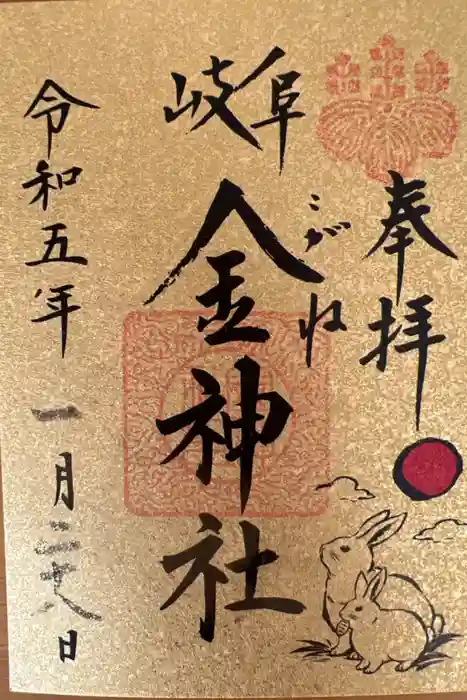 奉拝
岐阜
こがね
金神社
令和五年 一月二十八日